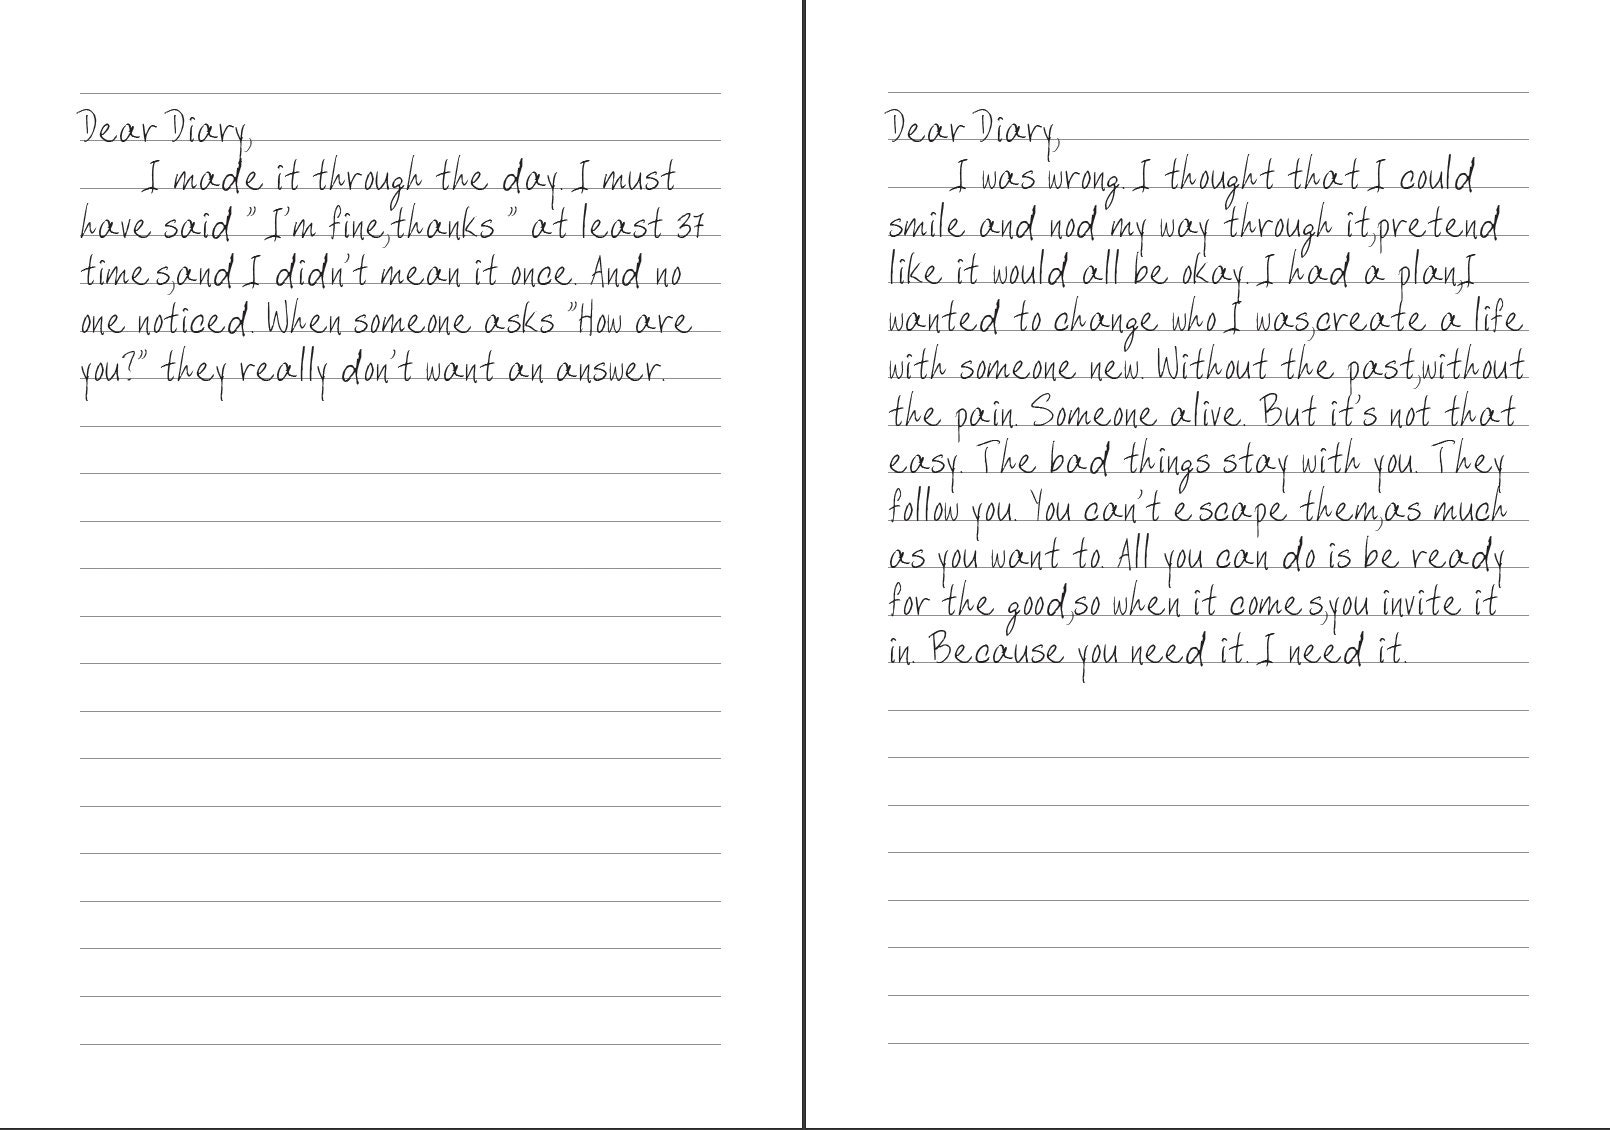 Dear Diary,
I made it through the day. I must
have said " I'm fine,thanks " at least 37
times,and I didn't mean it once. And no
one noticed. When someone asks "How are
you?" they really don't want an answer.
Dear Diary,
I was wrong. I thought that I could
smile and nod my way through it,pretend
like it would all be okay. I had a plan,I
wanted to change who I was,create a life
with someone new. Without the past,without
the pain. Someone alive. But it's not that
easy. The bad things stay with you. They
follow you. You can't escape them,as much
as you want to. All you can do is be ready
for the good,so when it comes,you invite it
in. Because you need it. I need it.